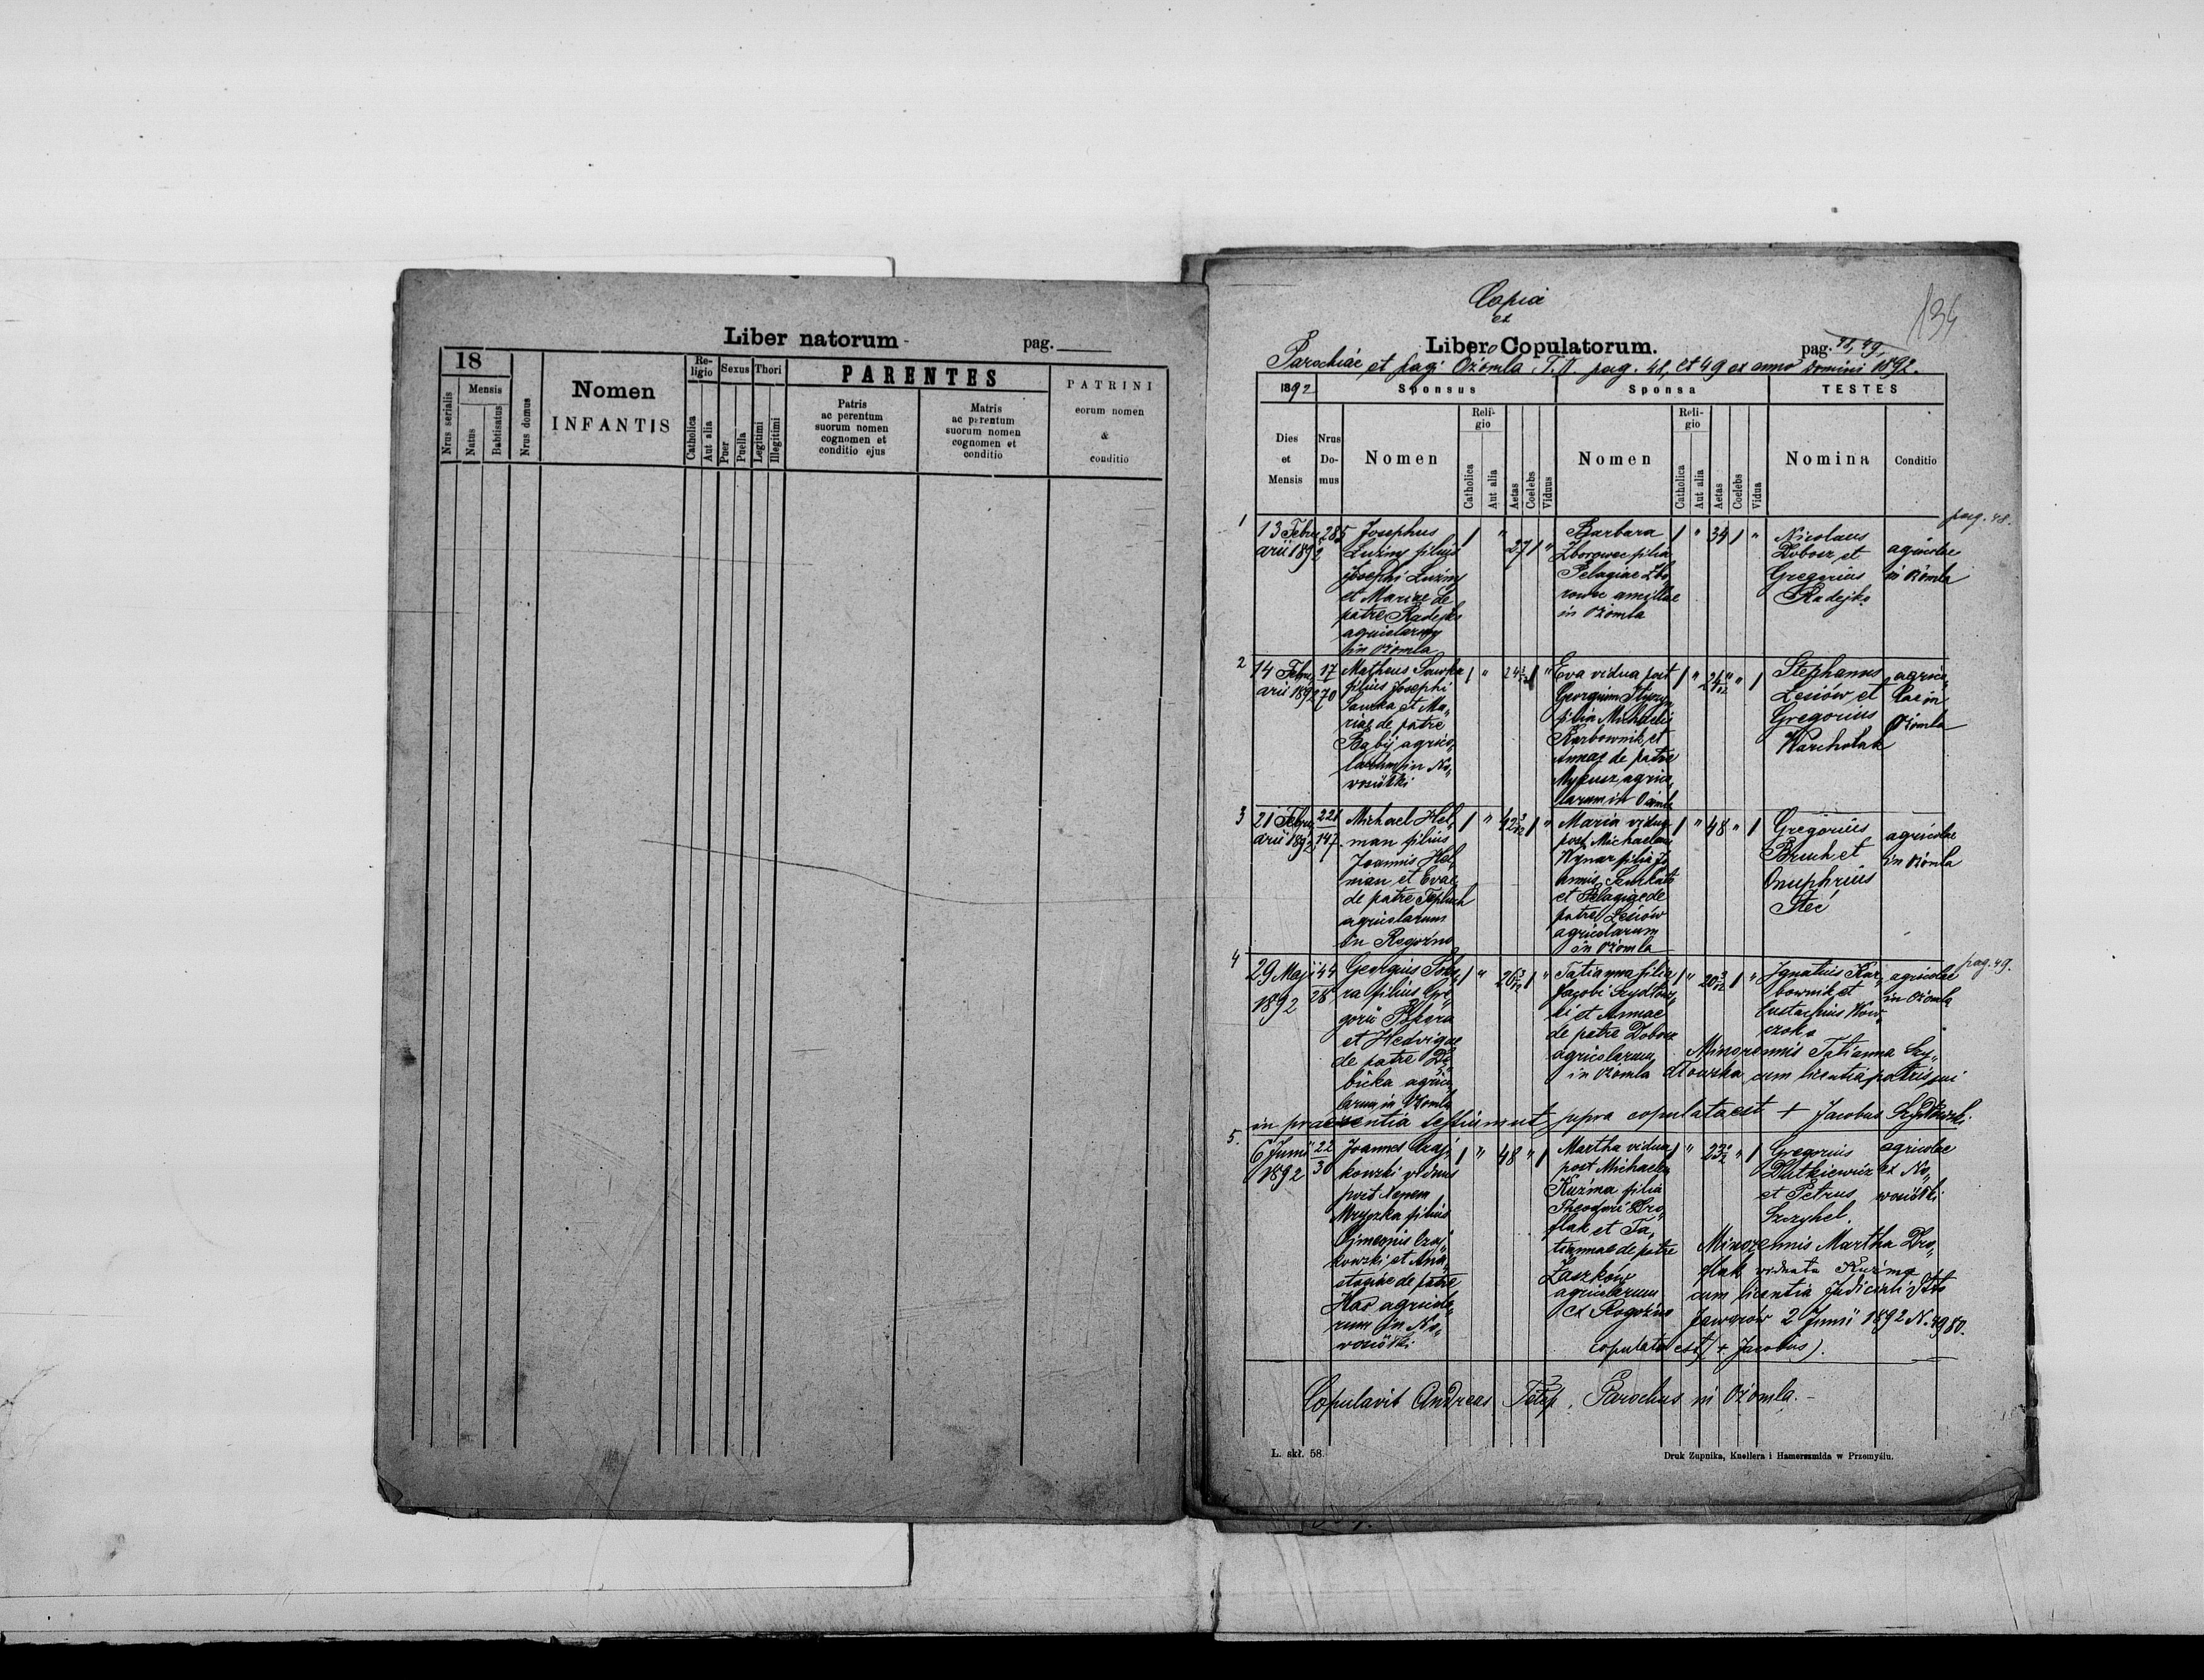 Liber natorum
pag.
18
Mensis
Nrus serialis
Natus
Babtisatus
Nrus domus
Nomen
INFANTIS
Re-
ligio
Catholica
Aut alia
Sexus
Puer
Puella
Thori
Legitimi
Illegitimi
PARENTES
Patris
ac perentum
suorum nomen
cognomen et
conditio ejus
Matris
ac perentum
suorum nomen
cognomen et
conditio
PATRINI
eorum nomen
&
conditio
Copia
ex
134
Libero Copulatorum.
pag. 48, 49,
Parochiae et pagi Ożomla pag. 48, et 49 ex anno Domini 1892.
1892
Sponsus
Sponsa
TESTES
Dies
et
Mensis
Nrus
Do-
mus
Nomen
Reli-
gio
Catholica
Aut alia
Aetas
Coelebs
Viduus
Nomen
Reli-
gio
Catholica
Aut alia
Aetas
Coelebs
Vidua
Nomina
Conditio
pag. 48.
1
13 Febru
arii 1892
285
Josephus
Luźny filius
Josephi Luźny
et Mariae de
patre Radejko
in Ożomla
1 " 27 1 "
Barbara
Zborowec filia
Pelagiae Zbo
rowec ancillae
in Ożomla
1 " 34 1 "
Nicolaus
Dobosz et
Gregorius
Radejko
agricolae
in Ożomla
2
14 Febru
arii 1892
17
270
Matheus Sawka
filius Josephi
Sawka et Ma„
riae de patre
Babij agrico„
larum in No„
wosiółki
1 "
Eva vidua post
Georgium
filia Michaelis
Karbownik et
Annae de patre
agrico„
larum in Ożomla
1 "
Stephanus
Lesiów et
Gregorius
Warchołak
agrico„
lae in
Ożomla
3
21 Febru
arii 1892
221
147
Michael Hel„
man filius
Joannis Hel„
man et Evae
de patre
agricolarum
in Rogoźno
1 " 42 3/12 1 "
Maria vidua
post Michaelem
Kynar filia Jo
annis
et Pelagiae de
patre Lesiów
agricolarum
in Ożomla
1 " 48 " 1
Gregorius
Bruch et
Onuphrius
Steć
agricolae
in Ożomla
pag. 49.
4
29 Maji
1892
44
28
Georgius
ra filius Gre
gorii
et Hedvigae
de patre Dę
bicka agrico„
larum in Ożomla
1 " 26 3/12 1 "
Tatianna filia
Jacobi Szydłow„
ki et Annae
de patre Dobosz
agricolarum
in Ożomla
1 " 20 3/12 1 "
Ignatius Kar„
bownik et
Eustachius
agricolae
in Ożomla
Minorennis Tatianna Szy„
dłowska cum licentia patris sui
in praesentia testium ut supra copulata est + Jacobus Szydłowski.
5.
6 Junii
1892
22
30
Joannes Czaj„
kowski viduus
post
filius
Simeonis Czaj„
kowski et Ana„
stasiae de patre
Has agricola„
rum in No„
wosiółki
1 " 48 " 1
Martha vidua
post Michaelem
Kuźma filia
Theodori Dro„
flak et Ta„
tiannae de patre
Łaszków
agricolarum
ex Rogoźno
1 "
Gregorius
Dutkiewicz
et Petrus
Szczyhel.
agricolae
ex No„
wosiółki
Minorennis Martha Dro„
flak viduata Kuźma
cum licentia Judiciali dtto
Jaworów 2 Junii 1892 N. 4980.
copulata est (+ Jacobus).
Copulavit Andreas Parochus in Ożomla.
L. skł. 58.
Druk Żupnika, Knellera i Hamerszmida w Przemyślu.